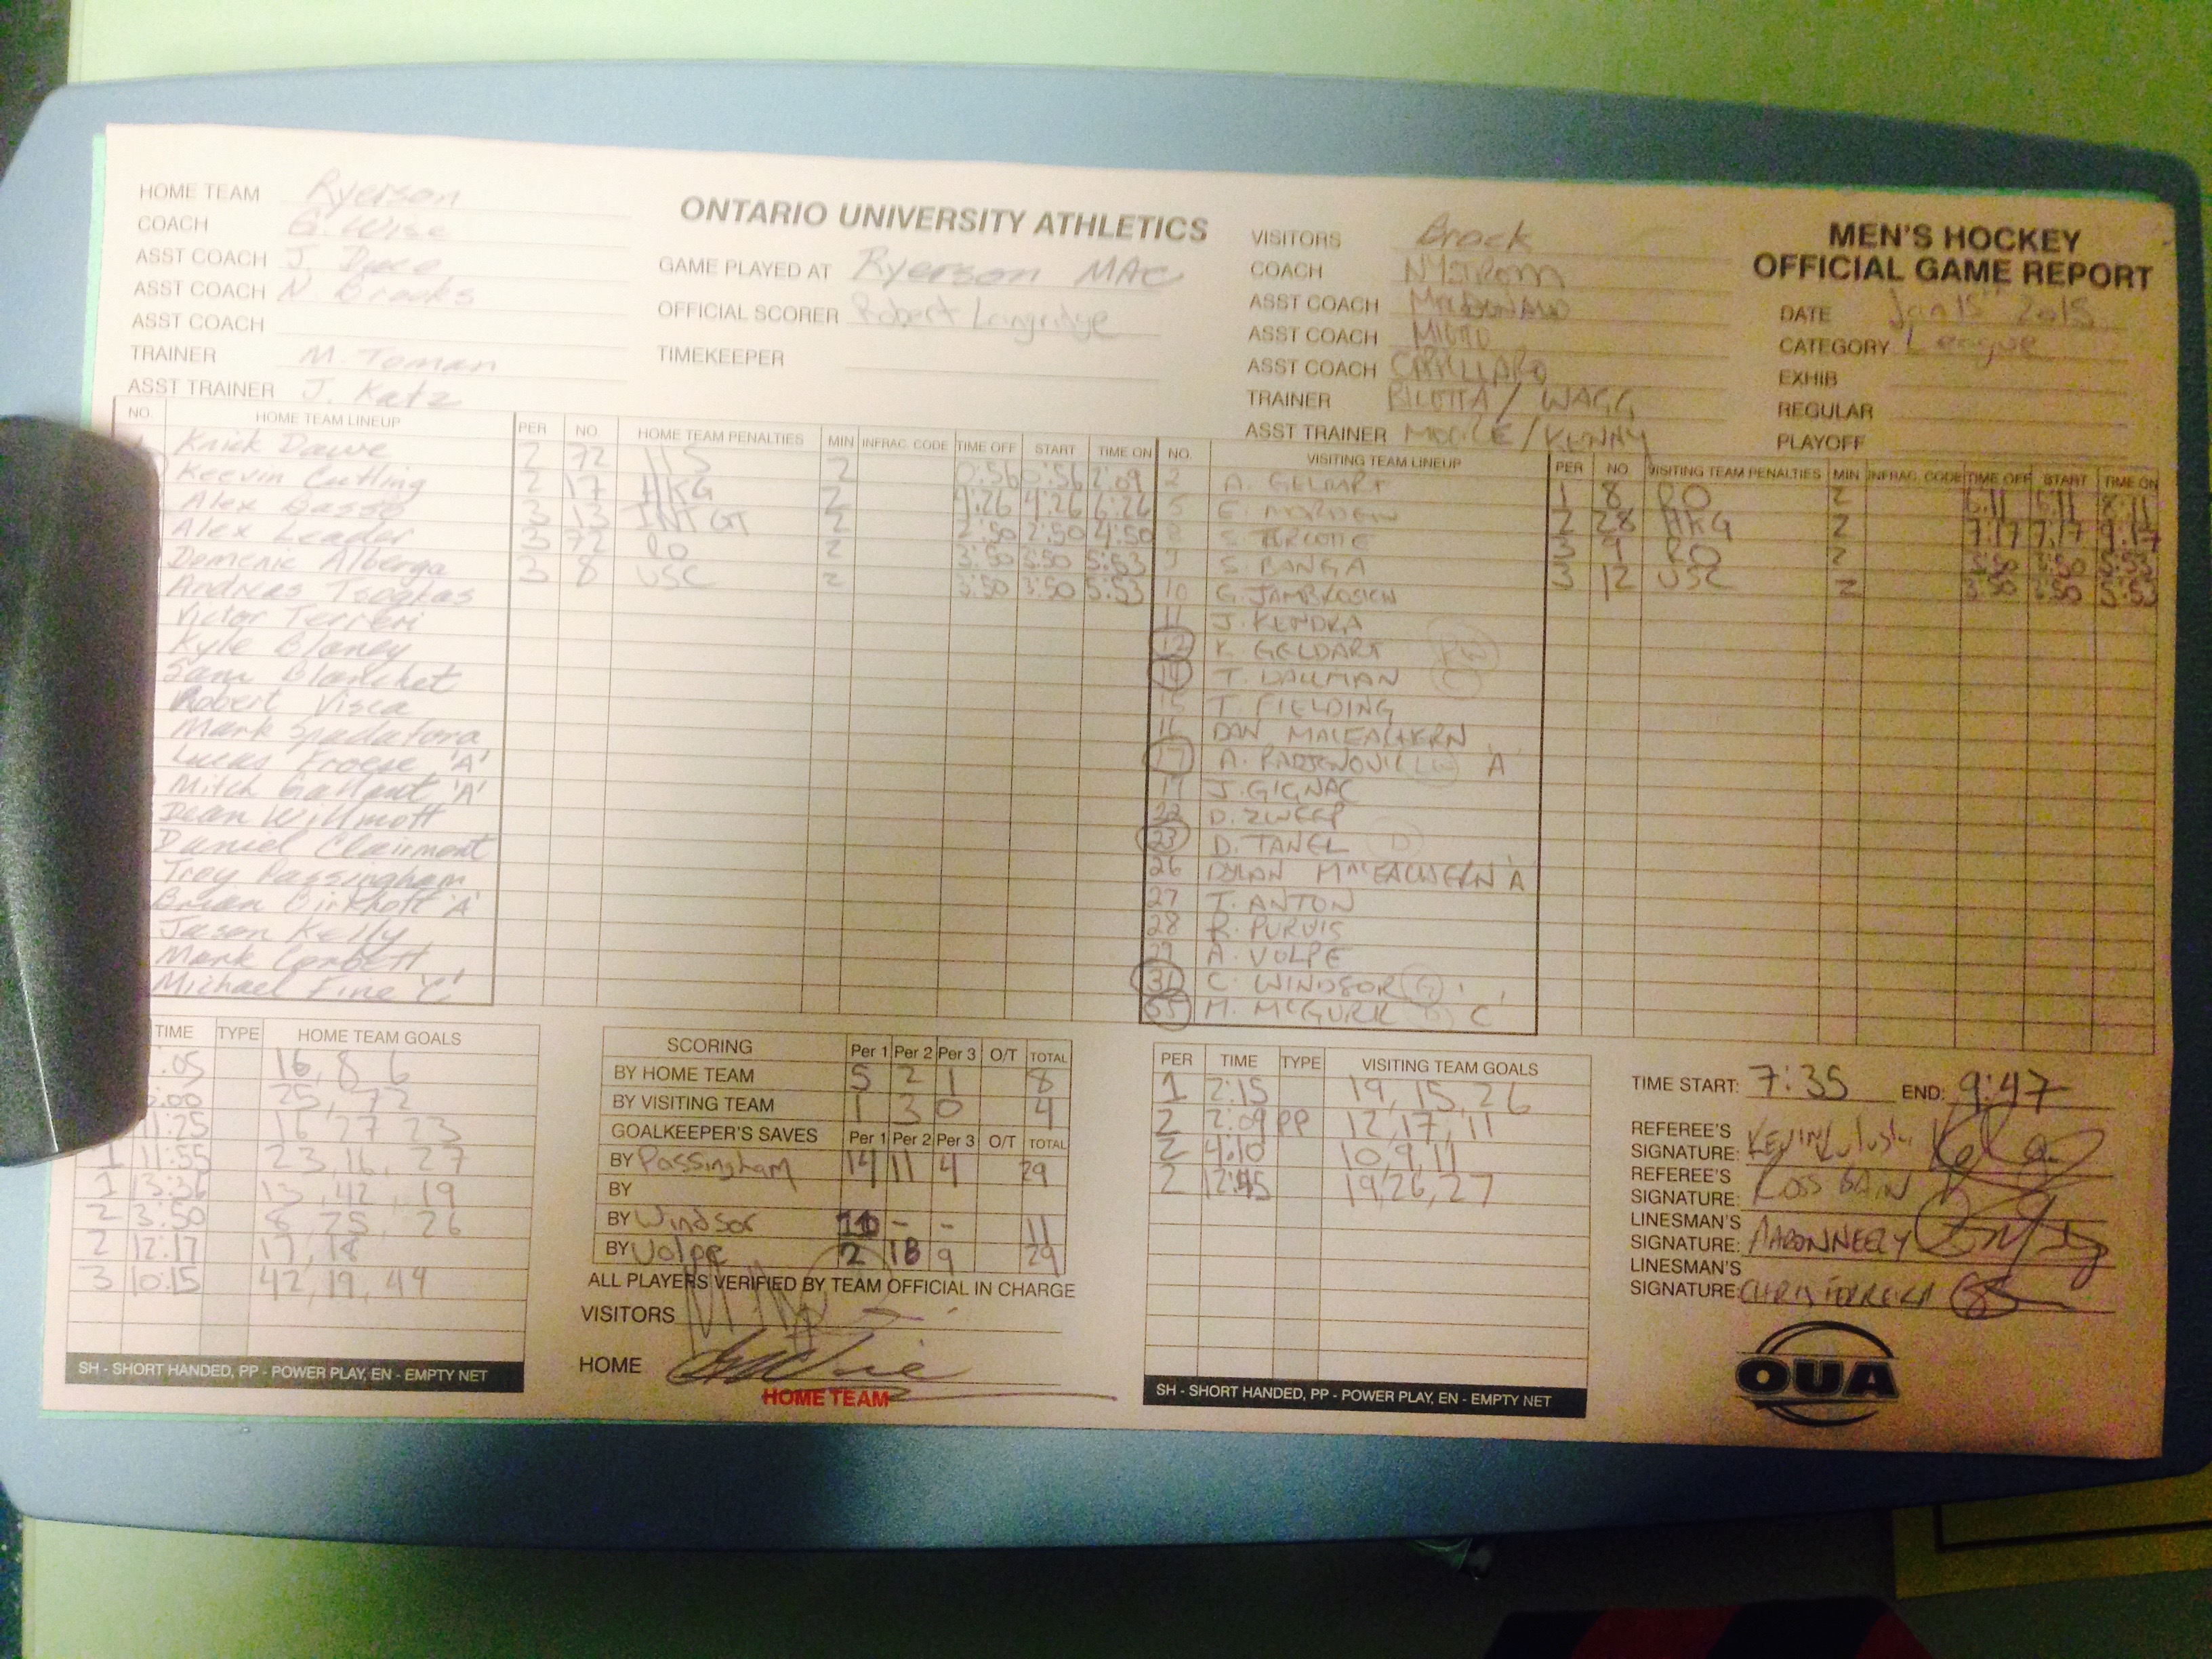 HOME TEAM Ryerson
COACH G. Wise
ASST COACH J.
ASST COACH N. Brooks
ASST COACH
TRAINER M. Toman
ASST TRAINER J. Katz
ONTARIO UNIVERSITY ATHLETICS
GAME PLAYED AT Ryerson MAC
OFFICIAL SCORER Robert Langridge
TIMEKEEPER
VISITORS Brock
COACH NYSTROM
ASST COACH MACDONALD
ASST COACH
ASST COACH
TRAINER BILOTTA / WAGG
ASST TRAINER / KENNY
MEN'S HOCKEY
OFFICIAL GAME REPORT
DATE Jan 15th 2015
CATEGORY League
EXHIB
REGULAR
PLAYOFF
NO. HOME TEAM LINEUP
Knick Dawe
Keevin Cutting
Alex Basso
Alex Leader
Domenic Alberga
Andreas Tsogkas
Victor Terreri
Kyle Blaney
Sam Blanchet
Robert Visca
Mark Spadafora
Lucas Froese 'A'
Mitch Gallant 'A'
Dean Willmott
Daniel Clairmont
Troy Passingham
Brian Birkhoff 'A'
Jason Kelly
Mark Corbett
Michael Fine 'C'
PER NO. HOME TEAM PENALTIES MIN INFRAC. CODE TIME OFF START TIME ON
2 72 2 0:56 0:56 2:09
2 17 HKG 2 4:26 4:26 6:26
3 13 INT GT 2 2:50 2:50 4:50
3 72 RO 2 3:50 3:50 5:53
3 8 USC 2 3:50 3:50 5:53
NO. VISITING TEAM LINEUP
2 A. GELDART
5 E.
8 S. TURCOTTE
9 S. BANGA
10 G. JAMBROSICH
11 J. KENDRA
12 K. GELDART
14 T.
15 T. FIELDING
16 DAN MACEACHERN
17 A. A
19 J. GIGNAC
22 D. ZWEEP
23 D. TANEL D
26 DYLAN MACEACHERN A
27 T. ANTON
28 R. PURVIS
29 A. VOLPE
31 C. WINDSOR G
55 M. MCGURK C
PER NO. VISITING TEAM PENALTIES MIN INFRAC. CODE TIME OFF START TIME ON
1 8 RO 2 6:11 6:11 8:11
2 28 HKG 2 7:17 7:17 9:17
3 9 RO 2 3:50 3:50 5:53
3 12 USC 2 3:50 3:50 5:53
TIME TYPE HOME TEAM GOALS
:05 16, 8 6
:00 25, 72
11:25 16, 27 23
1 11:55 23, 16, 27
1 13:36 13, 42, 19
2 3:50 8, 25, 26
2 12:17 17, 18
3 10:15 42, 19, 49
SH - SHORT HANDED, PP - POWER PLAY, EN - EMPTY NET
SCORING Per 1 Per 2 Per 3 O/T TOTAL
BY HOME TEAM 5 2 1 8
BY VISITING TEAM 1 3 0 4
GOALKEEPER'S SAVES Per 1 Per 2 Per 3 O/T TOTAL
BY Passingham 14 11 4 29
BY
BY Windsor 11 - - 11
BY Volpe 2 18 9 29
ALL PLAYERS VERIFIED BY TEAM OFFICIAL IN CHARGE
VISITORS
HOME
HOME TEAM
PER TIME TYPE VISITING TEAM GOALS
1 2:15 19, 15, 26
2 2:09 PP 12, 17, 11
2 4:10 10, 9, 11
2 12:45 19, 26, 27
SH - SHORT HANDED, PP - POWER PLAY, EN - EMPTY NET
TIME START: 7:35 END: 9:47
REFEREE'S
SIGNATURE: KEVIN
REFEREE'S
SIGNATURE: ROSS BAIN
LINESMAN'S
SIGNATURE: AARON NEELY
LINESMAN'S
SIGNATURE: CHRIS
OUA